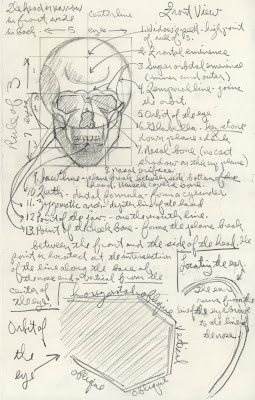 The head is narrow
in front, wide
in back
← 5 eyes →
center line
Front View
Rule of 3
1. Widow's peak - high point
of rule of 3.
2. Frontal eminence
3. Super orbital eminence
(inner and outer)
4. Temporal line - joins
the orbit.
5. Orbit of the eye
6. Glabella
down plane
7. Nasal bone
8. Nasal aperture
9. Jaw line - plane break between side bottom of the
head. Muscle covers bone
10. Teeth - dental formula - form a cylinder
11. Zygomatic arch - depth line of the head
12. Point of the jaw - on the mouth line.
13. Point of the cheek bone - forms the plane break
between the front and the side of the head. The
point is located at the intersection
of the line along the base of
the nose and a vertical from the
center of
the eyes.
Locating the ear.
The ear
runs from the
line of the eye brow
to the line of
the nose.
Orbit of
the
eye
horizontal
oblique
vertical
oblique
oblique